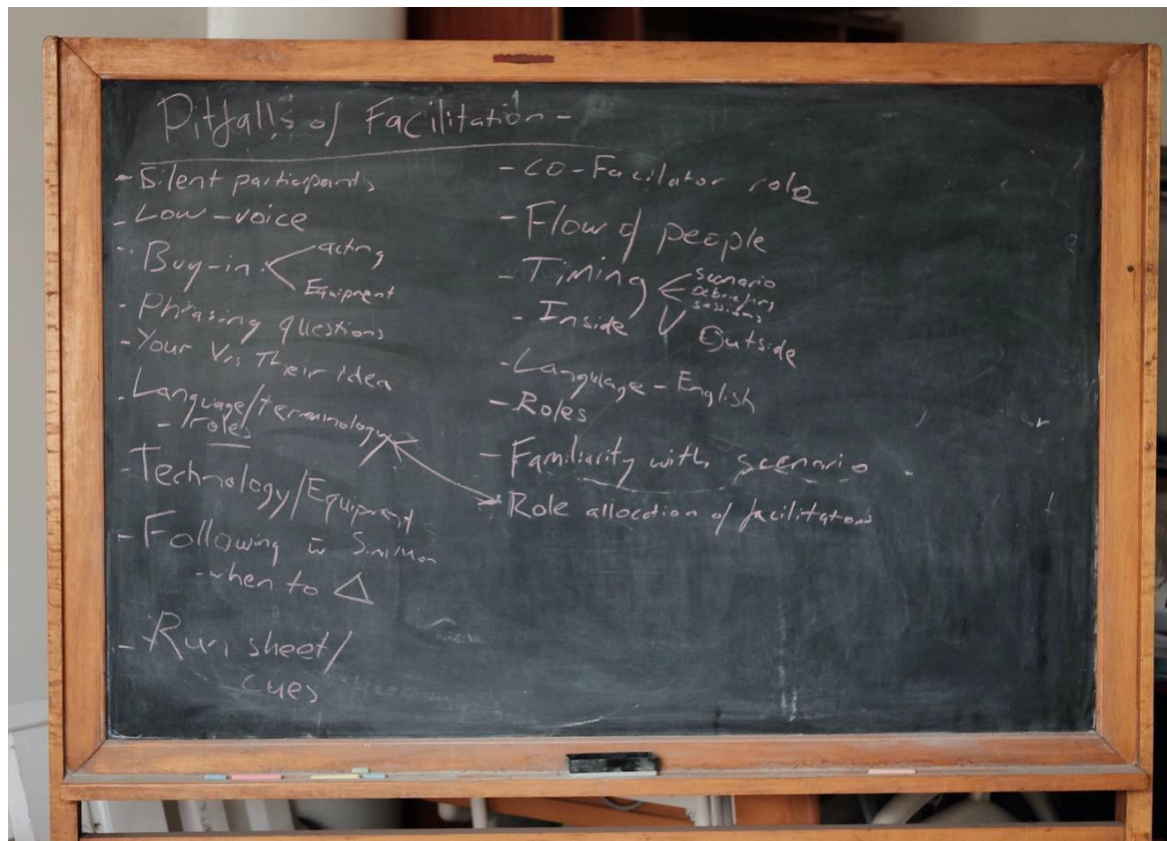 Pitfalls of Facilitation -
- Silent participants
- Low-voice
- Buy-in
acting
Equipment
- Phrasing questions
- Your Vrs Their idea
- Language/terminology
- roles
- Technology/Equipment
- Following in
- when to Δ
- Run sheet/
cues
- CO-Facilator role
- Flow of people
- Timing
scenario
Debriefing
sessions
- Inside V Outside
- Language - English
- Roles
- Familiarity with scenario
- Role allocation of facilitators